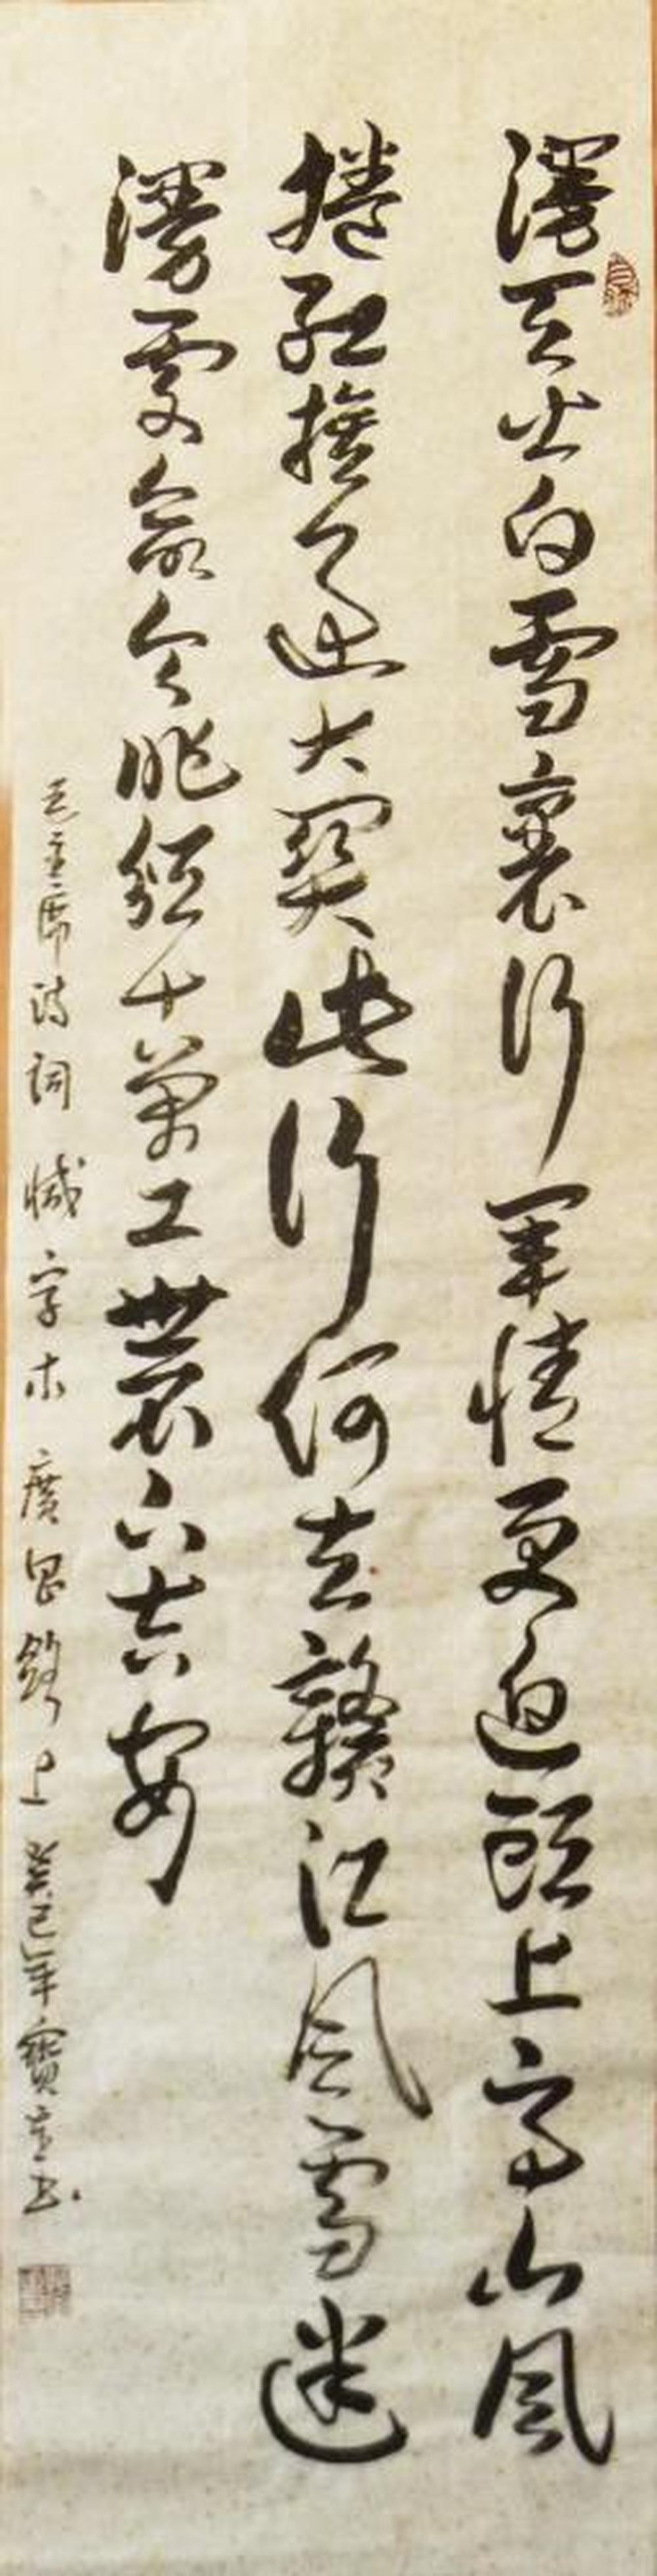 漫天皆白雪裏行軍情更迫頭上高山風
捲紅旗過大關此行何去贛江風雪迷
漫處命令昨頒十萬工農下吉安
毛主席詩詞 減字木 廣昌路上 癸巳年寶书